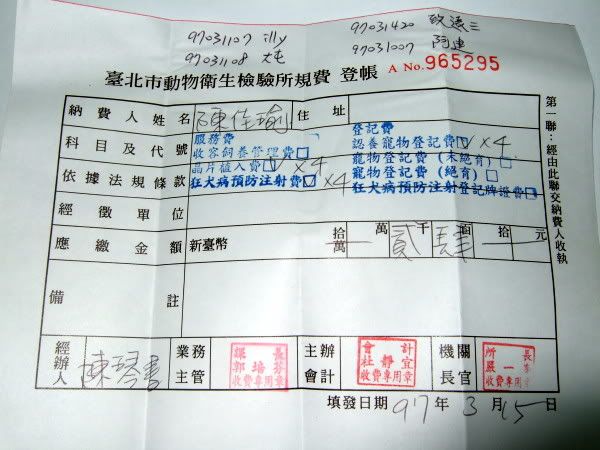 97031107 illy 97031420 致遠三
97031108 大屯 97031007 阿連
臺北市動物衛生檢驗所規費 登帳 A No. 965295
納費人姓名 陳佳瑜 住址
科目及代號
服務費
收容飼養管理費□
晶片植入費☑ ×4
狂犬病預防注射費☑ ×4
登記費
認養寵物登記費☑ ×4
寵物登記費(未絕育)□
寵物登記費(絕育)□
狂犬病預防注射登記牌證費□
依據法規條款
經徵單位
應繳金額 新臺幣 拾萬 一 萬 貳 千 肆 百 一 拾 一 元
備註
經辦人 陳琴書 業務主管 課長 郭 收費專用章 主辦會計 會計 杜靜宜 收費專用章 機關長官 所長 嚴一 收費專用章
填發日期 97 年 3 月 15 日
第一聯:經由此聯交納費人收執